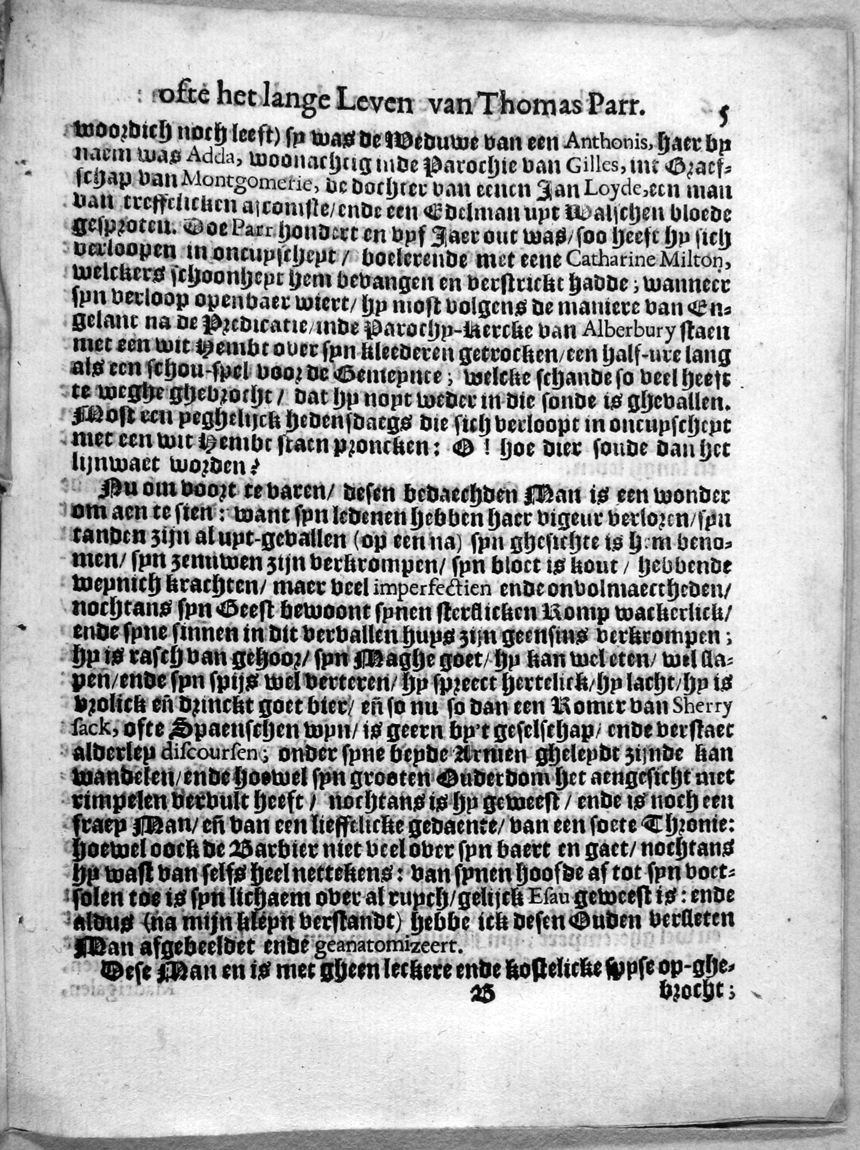 ofte het lange Leven van Thomas Parr. 5
woordich noch leeft) sy was de Weduwe van een Anthonis, haer by
naem was Adda, woonachtig inde Parochie van Gilles, int Graef-
schap van Montgomerie, de dochter van eenen Jan Loyde, een man
van treffelicken afcomste/ ende een Edelman uyt Walschen bloede
gesproten. Doe Parr hondert en vyf Jaer out was/ soo heeft hy sich
verloopen in oncuyscheyt / boelerende met eene Catharine Milton,
welckers schoonheyt hem bevangen en verstrickt hadde; wanneer
syn verloop openbaer wiert/ hy most volgens de maniere van En-
gelant na de Predicatie/ inde Parochy-Kercke van Alberbury staen
met een wit Hembt over syn kleederen getrocken/ een half-ure lang
als een schou-spel voor de Gemeynte; welcke schande so veel heeft
te weghe ghebrocht / dat hy noyt weder in die sonde is ghevallen.
Most een yeghelijck hedensdaegs die sich verloopt in oncuyscheyt
met een wit Hembt staen proncken: O ! hoe dier soude dan het
lijnwaet worden?
Nu om voort te varen/ desen bedaechden Man is een wonder
om aen te sien: want syn ledenen hebben haer vigeur verloren/ syn
tanden zijn al uyt-gevallen (op een na) syn ghesichte is hem beno-
men/ syn zenuwen zijn verkrompen/ syn bloet is kout / hebbende
weynich krachten/ maer veel imperfectien ende onvolmaectheden/
nochtans syn Geest bewoont synen sterflicken Romp wackerlick/
ende syne sinnen in dit vervallen huys zijn geensins verkrompen;
hy is rasch van gehoor/ syn Maghe goet/ hy kan wel eten/ wel sla-
pen/ ende syn spijs wel verteren/ hy spreect hertelick/ hy lacht/ hy is
vrolick eñ drinckt goet bier/ eñ so nu so dan een Romer van Sherry
sack, ofte Spaenschen wyn/ is geern by't geselschap/ ende verstaet
alderley discoursen; onder syne beyde Armen gheleydt zijnde kan
wandelen/ ende hoewel syn grooten Ouderdom het aengesicht met
rimpelen vervult heeft / nochtans is hy geweest / ende is noch een
fraey Man/ eñ van een lieffelicke gedaente/ van een soete Thronie:
hoewel oock de Barbier niet veel over syn baert en gaet/ nochtans
hy wast van selfs heel nettekens: van synen hoofde af tot syn voet-
solen toe is syn lichaem over al ruych/ gelijck Esau geweest is: ende
aldus (na mijn kleyn verstandt) hebbe ick desen Ouden versleten
Man afgebeeldet ende geanatomizeert.
Dese Man en is met gheen leckere ende kostelicke spyse op-ghe-
B brocht;